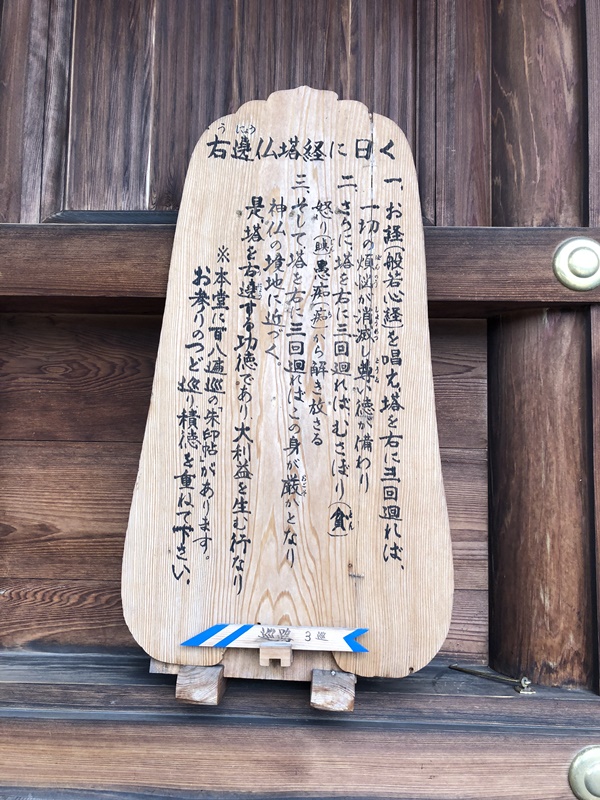 右遶仏塔経に曰く
一、お経(般若心経)を唱え塔を右に三回廻れば、
一切の煩悩が消滅し尊い徳が備わり
二、さらに塔を右に三回廻れば、むさぼり(貪)
怒り(瞋)愚痴(痴)から解き放さる
三、そして塔を右に三回廻ればこの身が厳かとなり
神仏の境地に近づく。
是塔を右遶する功徳であり大利益を生む行なり
※本堂に百八遍巡の朱印帖があります。
お参りのつど巡り積徳を重ねて下さい。
巡路 3巡